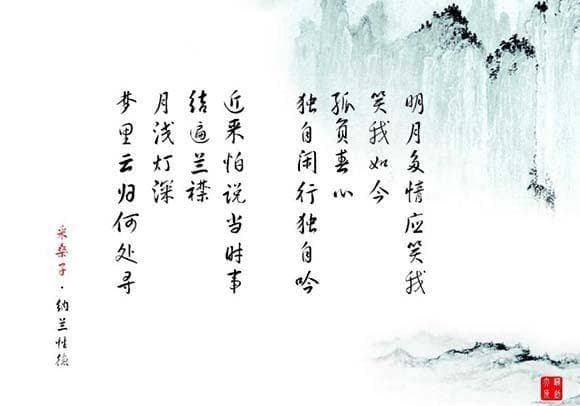 明月多情应笑我
笑我如今
孤负春心
独自闲行独自吟
近来怕说当时事
结遍兰襟
月浅灯深
梦里云归何处寻
采桑子·纳兰性德